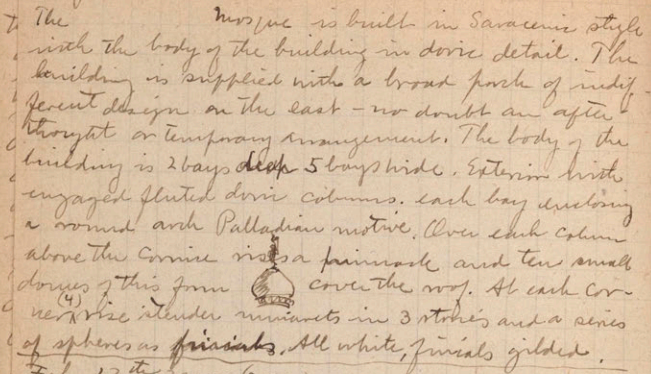 The Mosque is built in Saracenic style
with the body of the building in doric detail. The
building is supplied with a broad porch of indif-
ferent design on the east - no doubt an after
thought or temporary arrangement. The body of the
building is 2 bays deep 5 bays wide. Exterior with
engaged fluted doric columns. each bay enclosing
a round arch Palladian motive. Over each column
above the cornice rises a pinnacle and ten small
domes of this form cover the roof. At each cor-
ner (4) rise slender minarets in 3 stories and a series
of spheres as finials. All white, finials gilded.